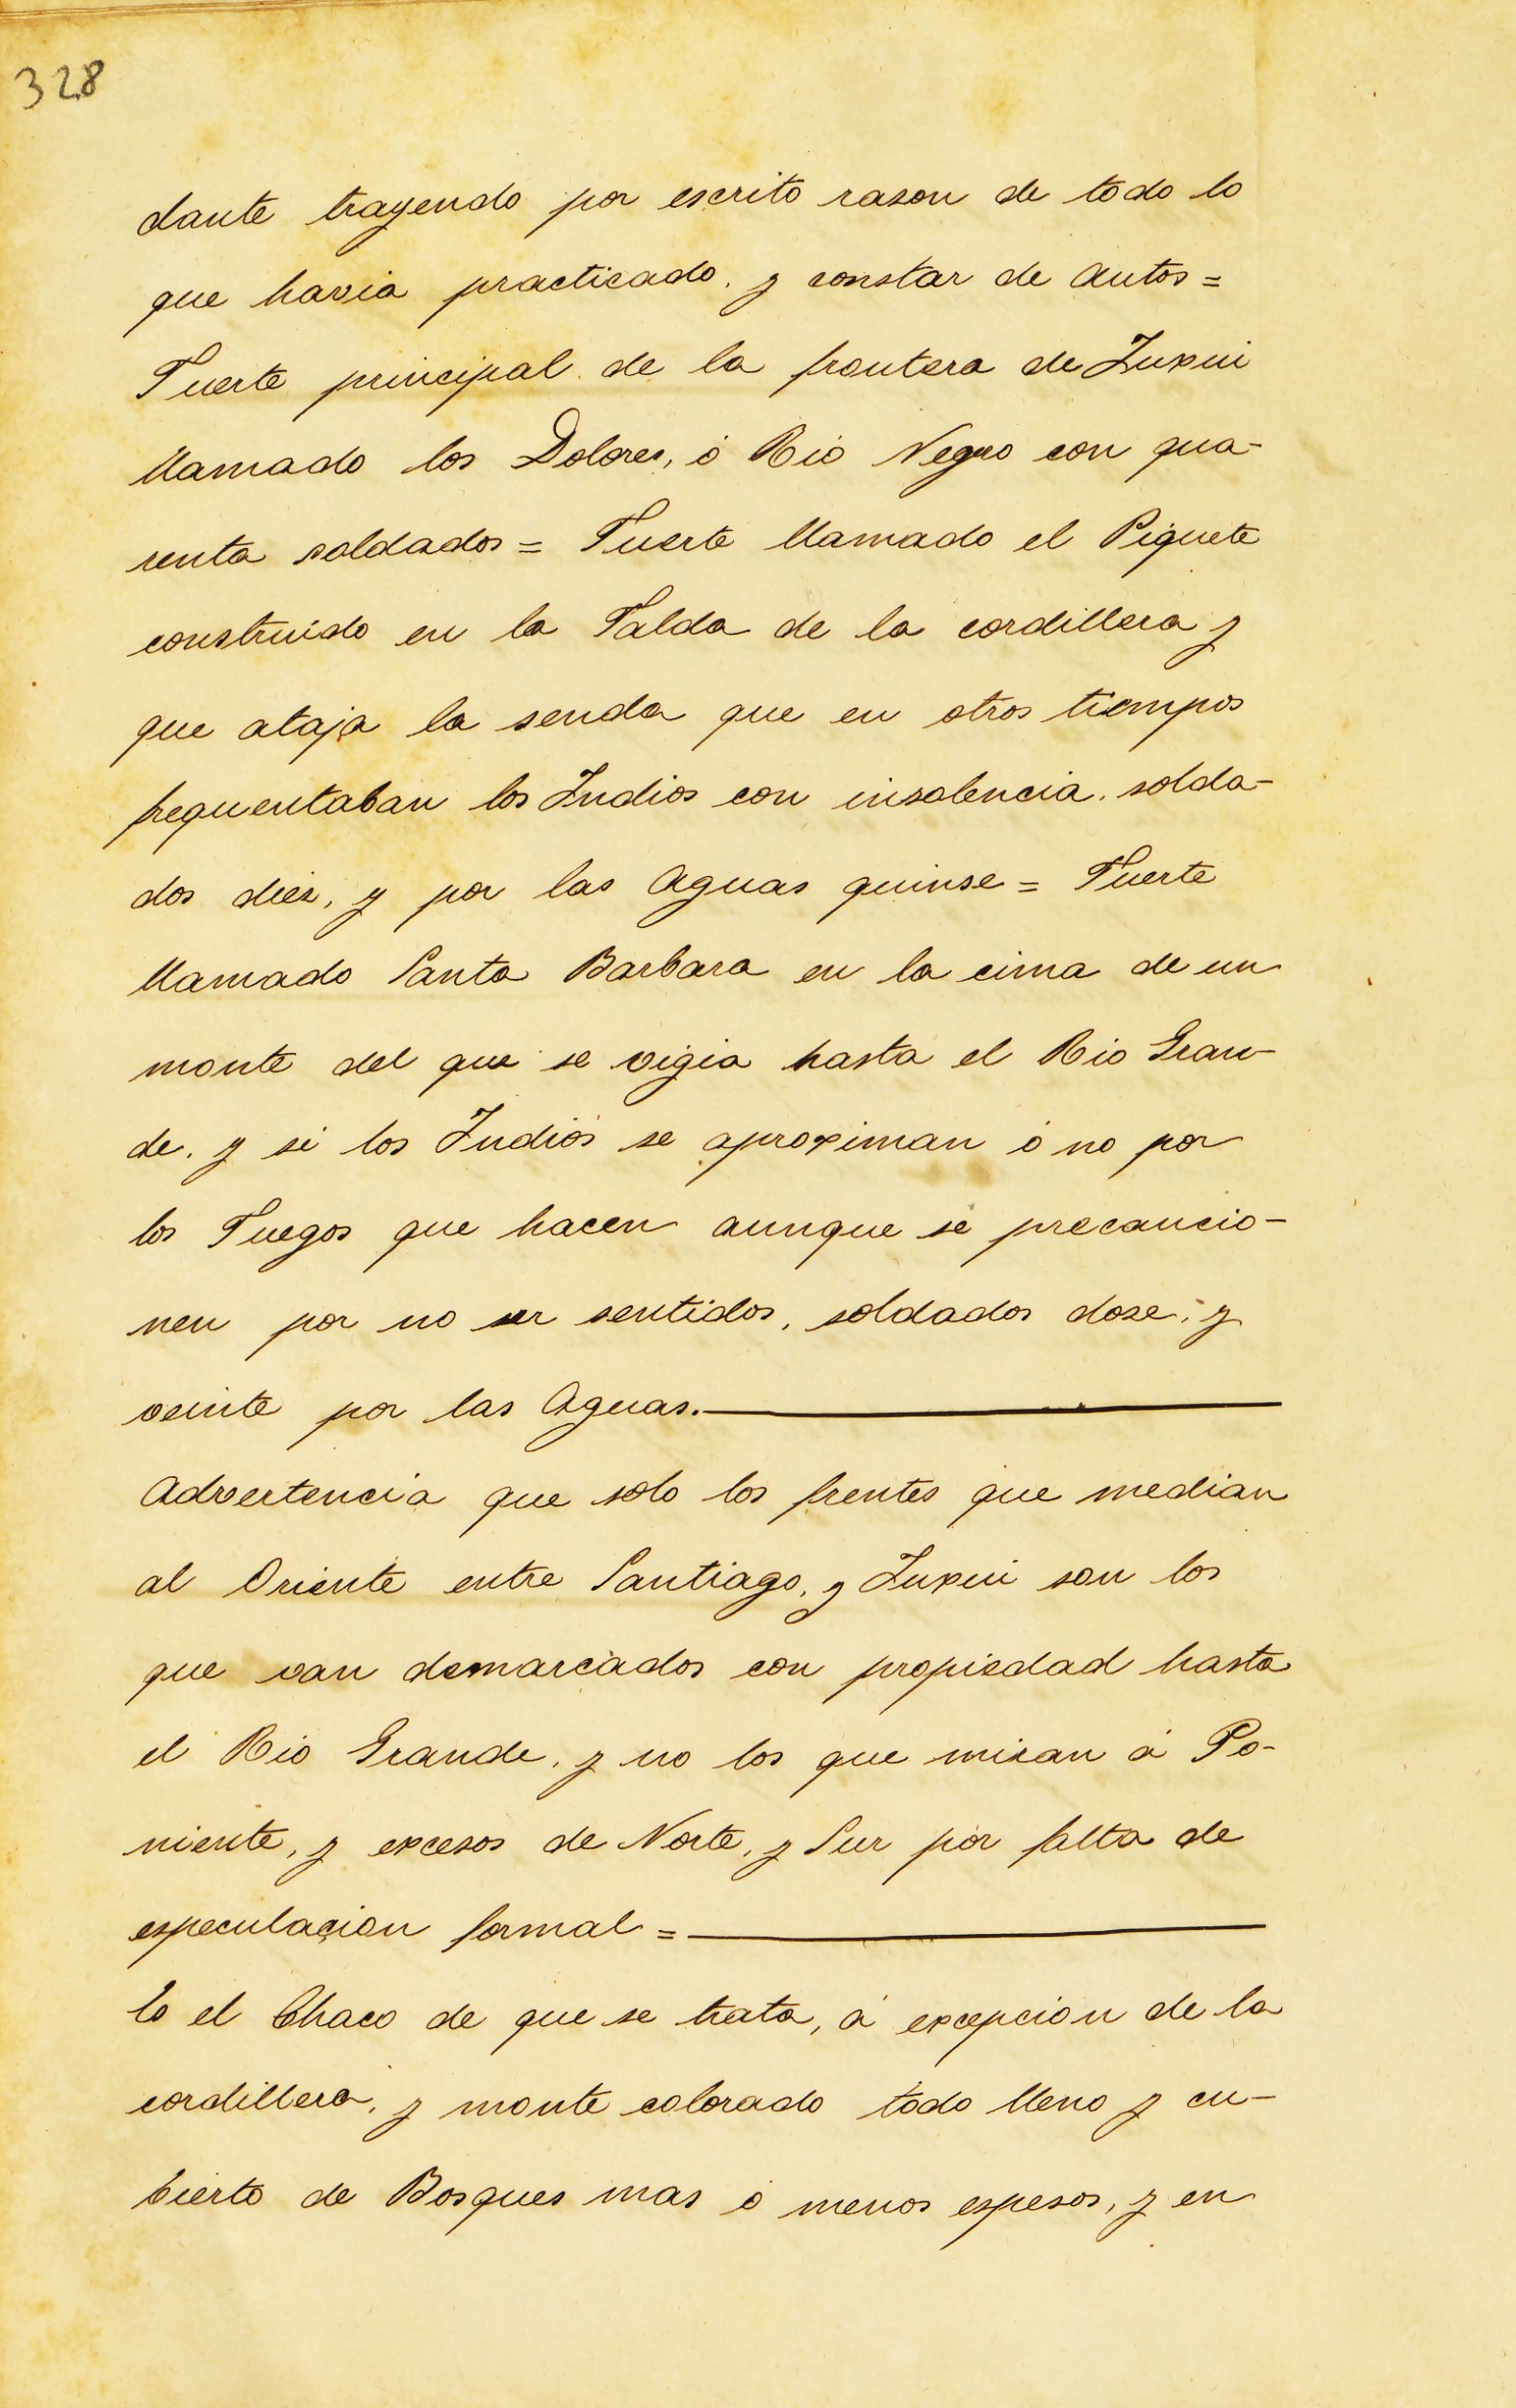 328
dante trayendo por escrito rason de todo lo
que havia practicado, y constar de autos =
Fuerte principal de la frontera de Juxui
llamado los Dolores, ó Rio Negro con qua-
renta soldados = Fuerte llamado el Piquete
construido en la Falda de la cordillera y
que ataja la senda que en otros tiempos
frequentaban los Indios con insolencia, solda-
dos diez, y por las Aguas quinse = Fuerte
llamado Santa Barbara en la cima de un
monte del que se vigia hasta el Rio Gran-
de, y si los Indios se aproximan ó no por
los Fuegos que hacen aunque se precaucio-
nen por no ser sentidos, soldados dose, y
veinte por las Aguas.
Advertencia que solo los frentes que median
al Oriente entre Santiago, y Juxui son los
que van demarcados con propiedad hasta
el Rio Grande, y no los que miran á Po-
niente, y excesos de Norte, y Sur por falta de
especulacion formal =
Es el Chaco de que se trata, á excepcion de la
cordillera, y monte colorado todo lleno y cu-
bierto de Bosques mas ó menos espesos, y en